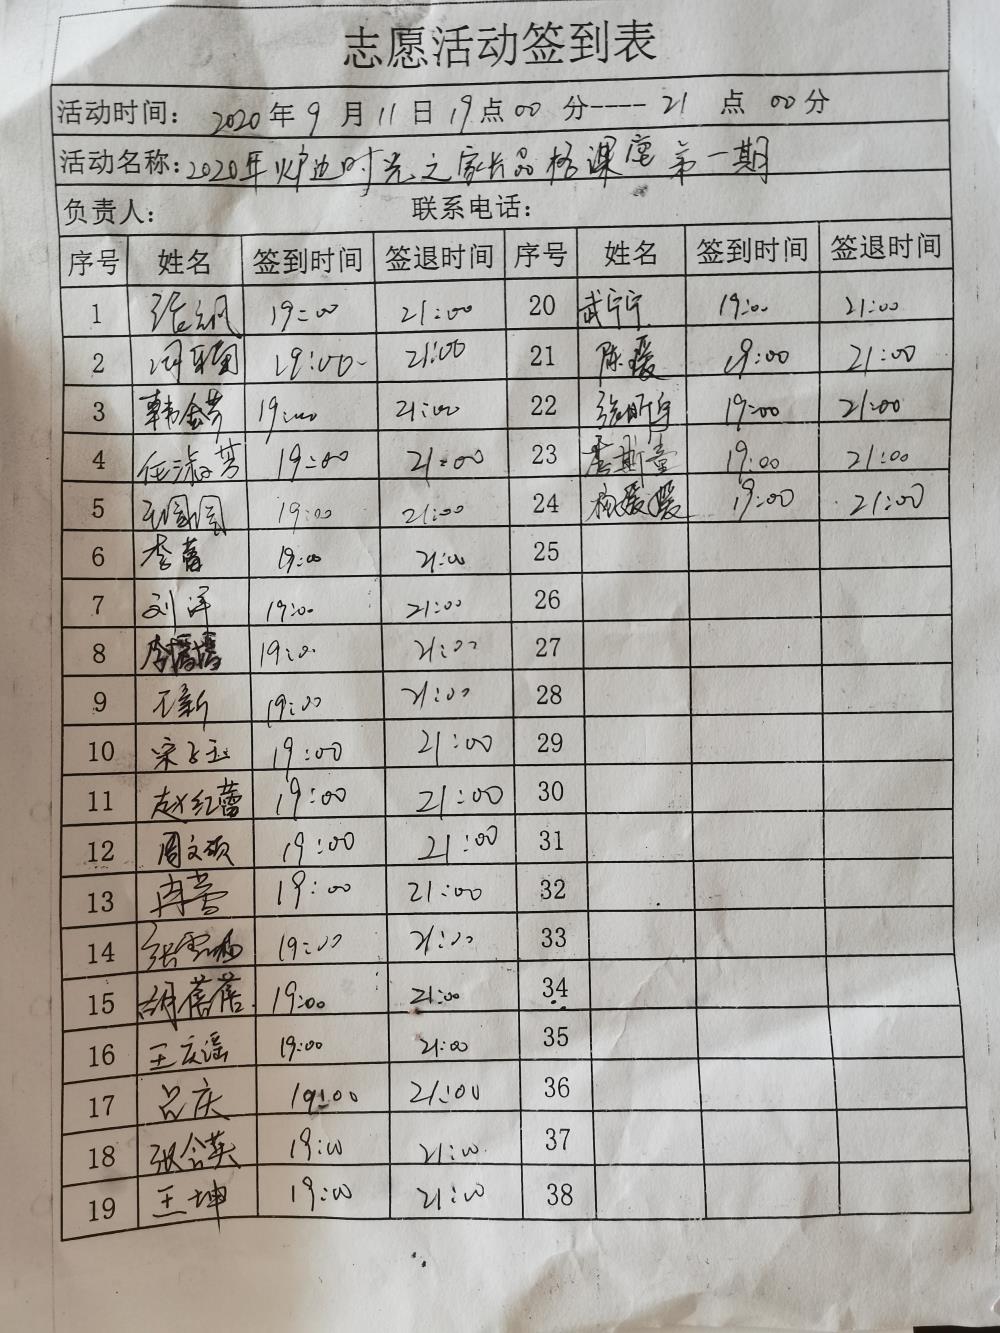 志愿活动签到表
活动时间: 2020年9月11日19点00分----21点00分
活动名称:2020年炉边时光之家长品格课堂第一期
负责人: 联系电话:
序号 姓名 签到时间 签退时间 序号 姓名 签到时间 签退时间
1 19:00 21:00 20 武宁宁 19:00 21:00
2 19:00 21:00 21 陈瑗 19:00 21:00
3 韩金芳 19:00 21:00 22 19:00 21:00
4 任淑芳 19:00 21:00 23 19:00 21:00
5 19:00 21:00 24 杨媛媛 19:00 21:00
6 李蕾 19:00 21:00 25
7 刘洋 19:00 21:00 26
8 19:00 21:00 27
9 19:00 21:00 28
10 宋子玉 19:00 21:00 29
11 赵红蕾 19:00 21:00 30
12 周文硕 19:00 21:00 31
13 冉莹 19:00 21:00 32
14 19:00 21:00 33
15 胡蓓蓓 19:00 21:00 34
16 王文谣 19:00 21:00 35
17 吕庆 19:00 21:00 36
18 张含英 19:00 21:00 37
19 王坤 19:00 21:00 38